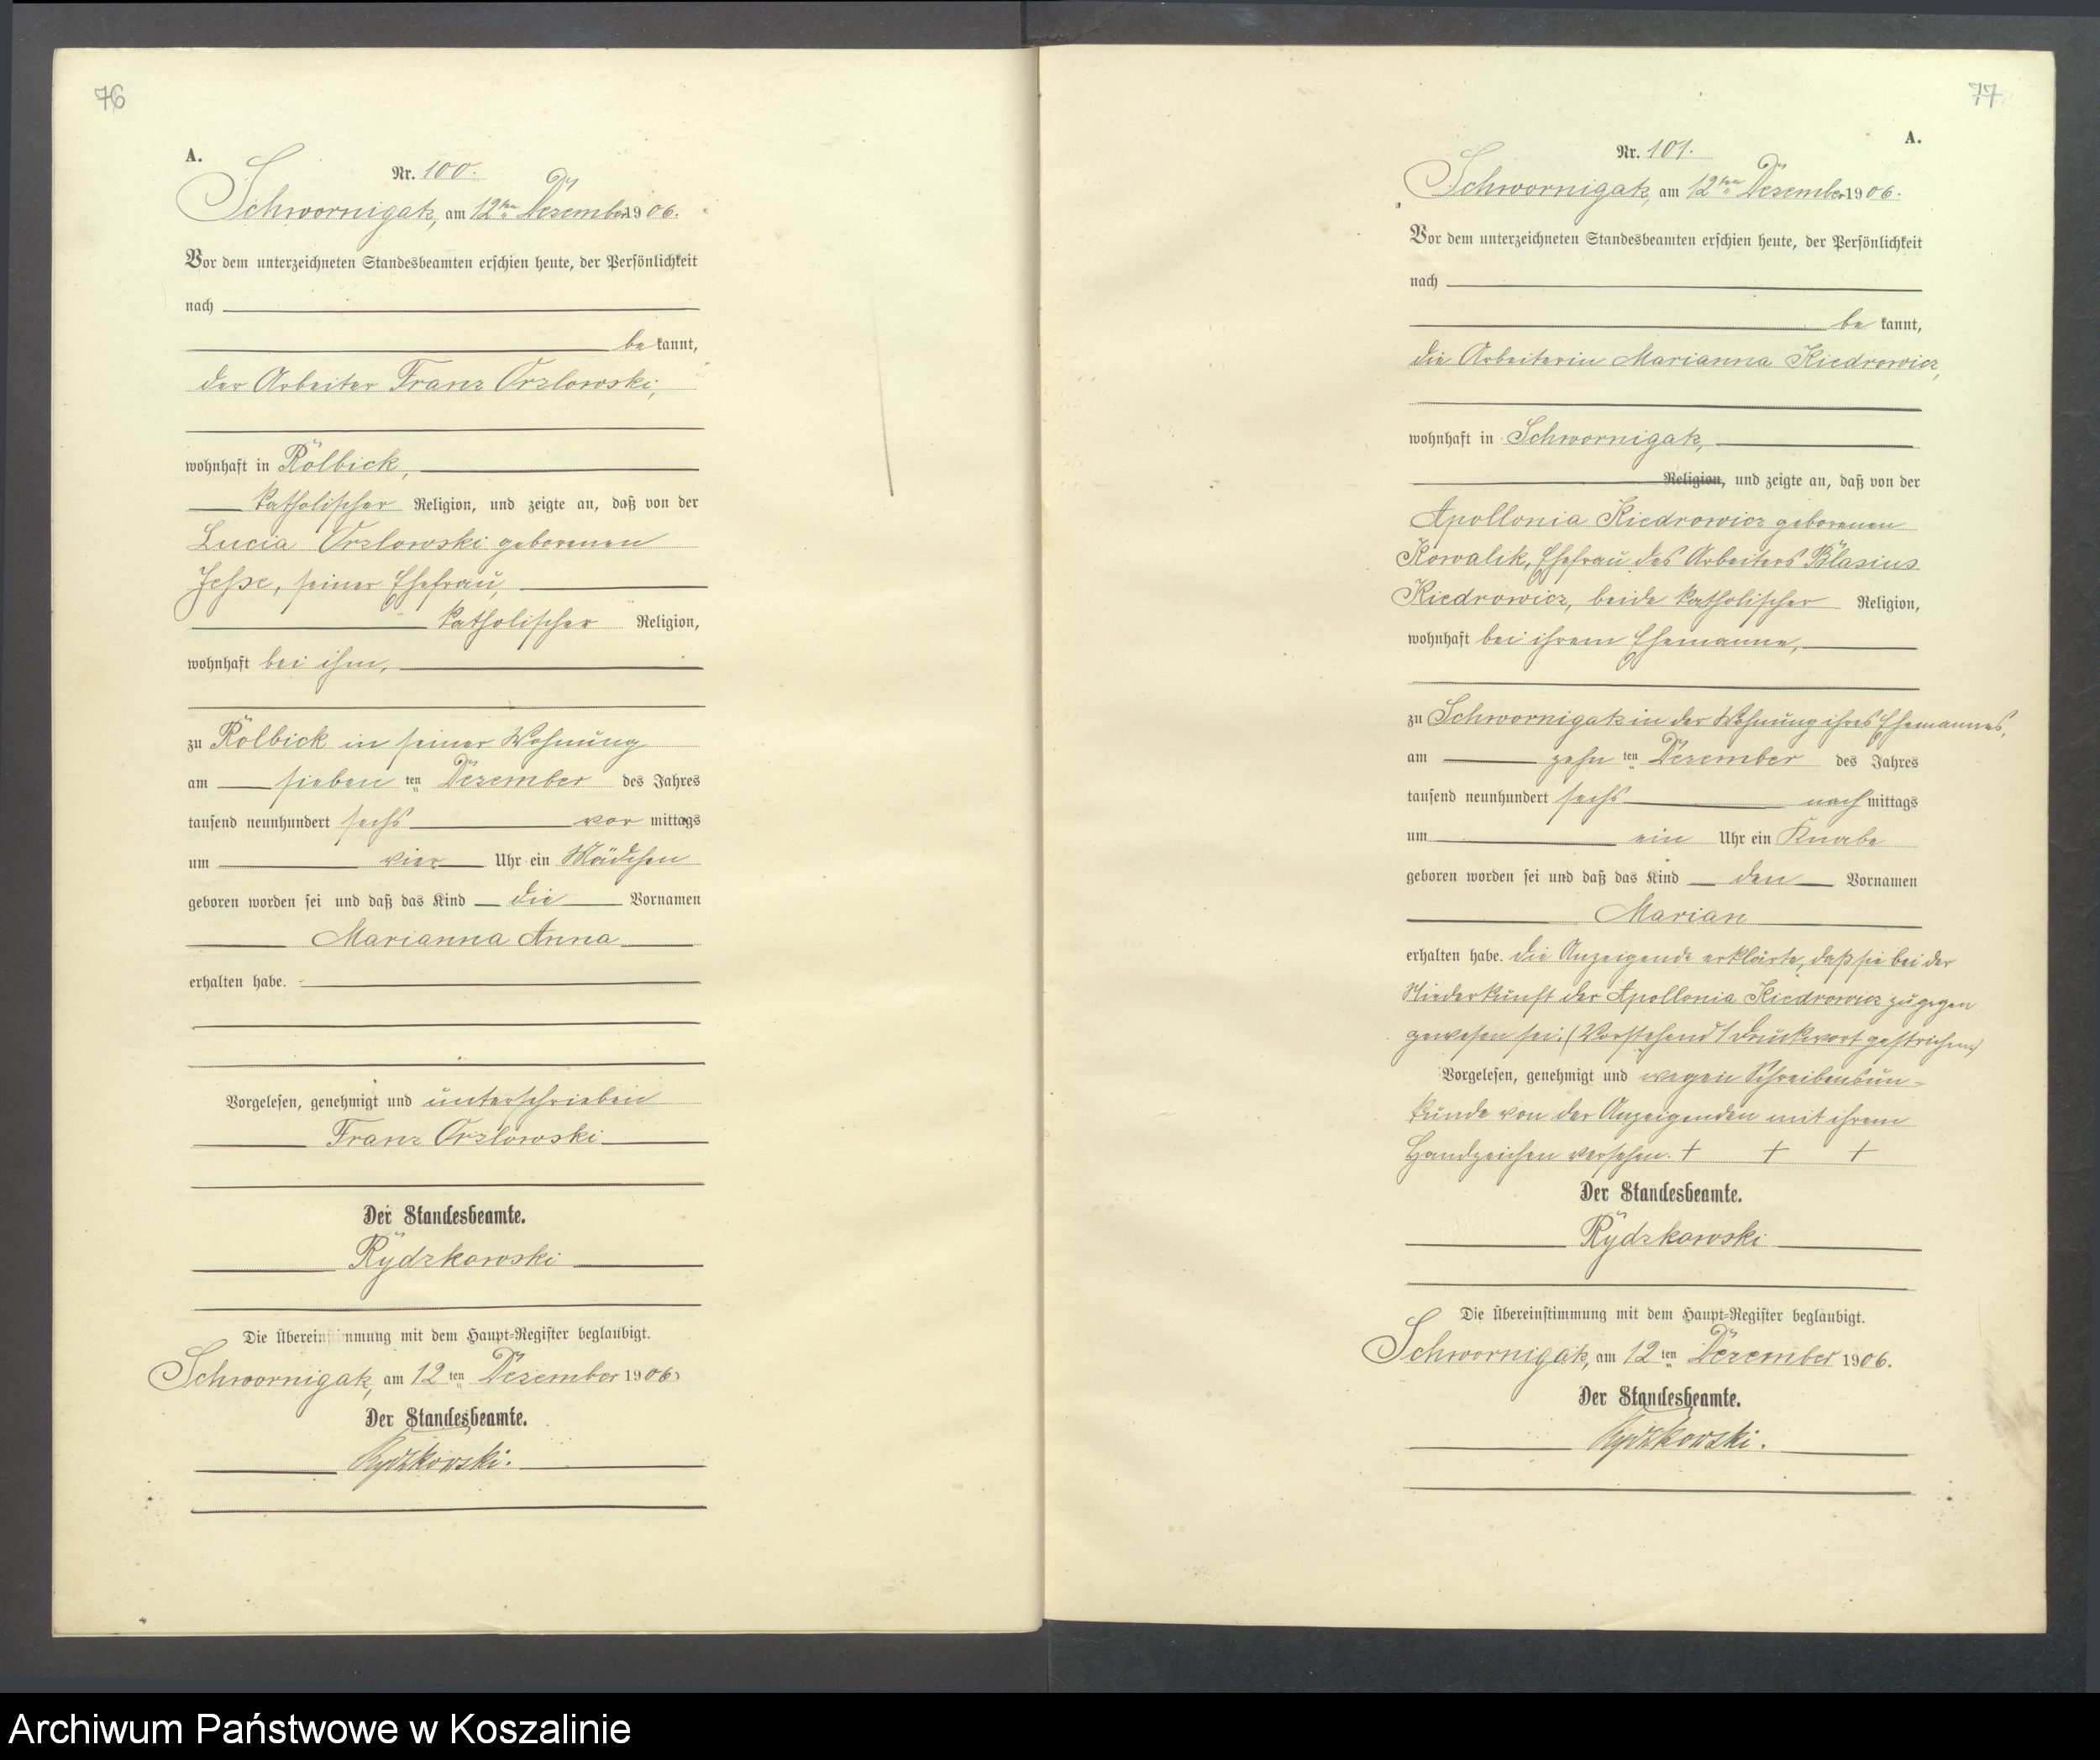 76
A.
Nr. 100.
Schwornigatz, am 12ten Dezember 1906.
Vor dem unterzeichneten Standesbeamten erschien heute, der Persönlichkeit
nach
be kannt,
der Arbeiter Franz Orzlowski,
wohnhaft in Rolbick,
katholischer Religion, und zeigte an, daß von der
Lucia Orzlowski geborenen
seiner Ehefrau,
katholischer Religion,
wohnhaft bei ihm,
zu Rolbick in seiner Wohnung
am sieben ten Dezember des Jahres
tausend neunhundert sechs vor mittags
um vier Uhr ein Mädchen
geboren worden sei und daß das Kind die Vornamen
Marianna Anna
erhalten habe.
Vorgelesen, genehmigt und unterschrieben
Franz Orzlowski
Der Standesbeamte.
Rydzkowski
Die Übereinstimmung mit dem Haupt-Register beglaubigt.
Schwornigatz, am 12 ten Dezember 1906.
Der Standesbeamte.
Rydzkowski.
77
A.
Nr. 101.
Schwornigatz, am 12ten Dezember 1906.
Vor dem unterzeichneten Standesbeamten erschien heute, der Persönlichkeit
nach
be kannt,
die Arbeiterin Marianna Kiedrowicz,
wohnhaft in Schwornigatz,
Religion, und zeigte an, daß von der
Apollonia Kiedrowicz geborenen
Kowalik, Ehefrau des Arbeiters Blasius
Kiedrowicz, beide katholischer Religion,
wohnhaft bei ihrem Ehemanne,
zu Schwornigatz in der Wohnung ihres Ehemannes,
am zehn ten Dezember des Jahres
tausend neunhundert sechs nach mittags
um ein Uhr ein Knabe
geboren worden sei und daß das Kind den Vornamen
Marian
erhalten habe. Die Anzeigende erklärte, daß sie bei der
Niederkunft der Apollonia Kiedrowicz zugegen
gewesen sei. (Vorstehend 1 Druckwort gestrichen)
Vorgelesen, genehmigt und wegen Schreibensun-
kunde von der Anzeigenden mit ihrem
Handzeichen versehen. + + +
Der Standesbeamte.
Rydzkowski
Die Übereinstimmung mit dem Haupt-Register beglaubigt.
Schwornigatz, am 12 ten Dezember 1906.
Der Standesbeamte.
Rydzkowski.
Archiwum Państwowe w Koszalinie